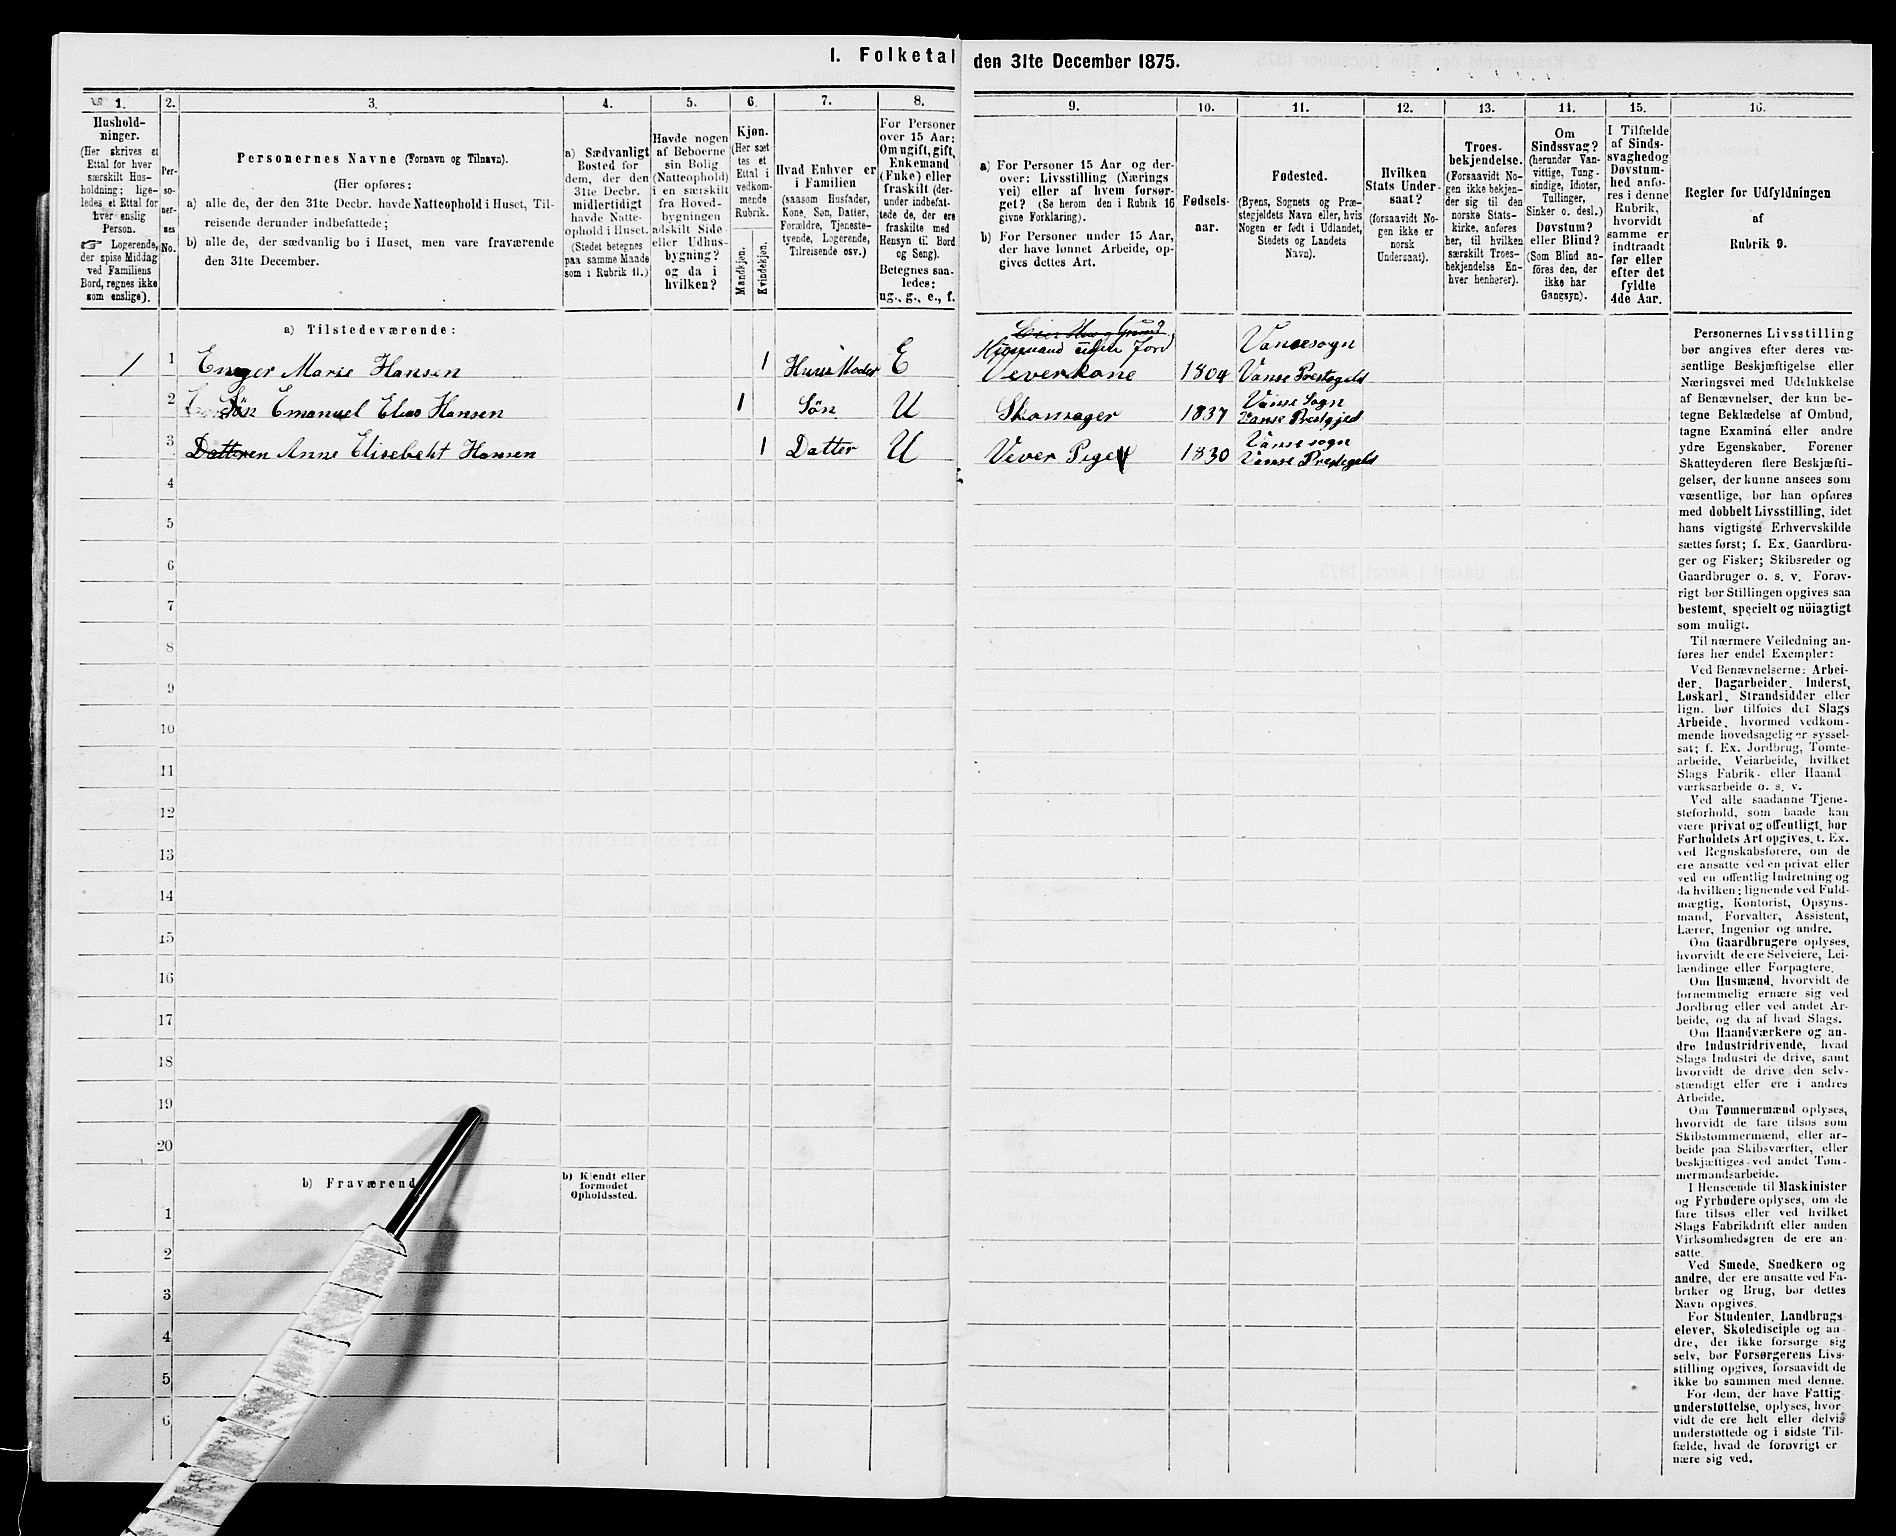 1. Folketal den 31te December 1875.
1.
Hushold-
ninger.
(Her skrives et
Ettal for hver
særskilt Hus-
holdning; lige-
ledes et Ettal for
hver enslig
Person.
☞ Logerende,
der spise Middag
ved Familiens
Bord, regnes ikke
som enslige).
2.
Per-
so-
ner-
nes
No.
3.
Personernes Navne (Fornavn og Tilnavn).
(Her opføres:
a) alle de, der den 31te Decbr. havde Natteophold i Huset, Til-
reisende derunder indbefattede;
b) alle de, der sædvanlig bo i Huset, men vare fraværende
den 31te December.
4.
a) Sædvanligt
Bosted for
dem, der den
31te Decbr.
midlertidigt
havde Natte-
ophold i Huset.
(Stedet betegnes
paa samme Maade
som i Rubrik 11.)
5.
Havde nogen
af Beboerne
sin Bolig
(Natteophold)
i en særskilt
fra Hoved-
bygningen
adskilt Side-
eller Udhus-
bygning?
og da i
hvilken?
6.
Kjøn.
(Her sæt
tes et
Ettal i
vedkom-
mende
Rubrik.
Mandkjøn.
Kvindekjøn.
7.
Hvad Enhver er
i Familien
(saasom Husfader,
Kone, Søn, Datter,
Forældre, Tjeneste-
tyende, Logerende,
Tilreisende osv.)
8.
For Personer
over 15 Aar:
Om ugift, gift,
Enkemand
(Enke) eller
fraskilt (der-
under indbefat-
tede de, der ere
fraskilte med
Hensyn til Bord
og Seng).
Betegnes saa-
ledes:
ug., g., e., f.
9.
a) For Personer 15 Aar og der-
over: Livsstilling (Nærings
vei) eller af hvem forsør-
get? (Se herom den i Rubrik 16
givne Forklaring).
b) For Personer under 15 Aar,
der have lønnet Arbeide, op-
gives dettes Art.
10.
Fødsels-
aar.
11.
Fødested.
(Byens, Sognets og Præ-
stegjeldets Navn eller, hvis
Nogen er født i Udlandet,
Stedets og Landets
Navn).
12.
Hvilken
Stats Under-
saat?
(forsaavidt No-
gen ikke er
norsk
Undersaat).
13.
Troes-
bekjendelse.
(Forsaavidt No-
gen ikke bekjen-
der sig til den
norske Stats-
kirke, anføres
her, til hvilken
særskilt Troes-
bekjendelse En-
hver henhører).
14.
Om
Sindssvag?
(herunder Van-
vittige, Tung-
sindige, Idioter,
Tullinger,
Sinker o. desl.)
Døvstum?
eller Blind?
(Som Blind an-
føres den, der
ikke har
Gangsyn).
15.
I Tilfælde
af Sinds-
svaghed og
Døvstum-
hed anfø-
res i denne
Rubrik,
hvorvidt
samme er
indtraadt
før eller
efter det
fyldte
4de Aar.
16.
Regler for Udfyldningen
af
Rubrik 9.
a) Tilstedeværende:
1 1 Enger Marie Hansen 1 Huus Moder E Huusmand uden Jord Veverkone 1804 Vansesogn Vanse Prestegeld
2 Søn Emanuel Elias Hansen 1 Søn U Skomager 1837 Vanse Sogn Vanse Prestgjed
3 Datteren Anne Elisebeht Hansen 1 Datter U Vever Pige 1830 Vanse sogn Vanse Prestegeld
4
5
6
7
8
9
10
11
12
13
14
15
16
17
18
19
20
b) Fraværend
b) Kjendt eller
formodet
Opholdssted.
1
2
3
4
5
6
Personernes Livsstilling
bør angives efter deres væ-
sentlige Beskjæftigelse eller
Næringsvei med Udelukkelse
af Benævnelser, der kun be-
tegne Beklædelse af Ombud,
tagne Examina eller andre
ydre Egenskaber. Forener
Skatteyderen flere Beskjæfti-
gelser, der kunne ansees som
væsentlige, bør han opføres
med dobbelt Livsstilling, idet
hans vigtigste Erhvervskilde
sættes først; f. Ex. Gaardbru-
ger og Fisker; Skibsreder og
Gaardbruger o. s. v. Forøv-
rigt bør Stillingen opgives saa
bestemt, specielt og nöiagtigt
som muligt.
Til nærmere Veiledning an-
føres her endel Exempler:
Ved Benævnelserne: Arbei-
der, Dagarbeider, Inderst,
Løskarl, Strandsidder eller
lign. bør tilføies det Slags
Arbeide, hvormed vedkom-
mende hovedsagelig er syssel-
sat; f. Ex. Jordbrug, Tomte-
arbeide, Veiarbeide, hvilket
Slags Fabrik- eller Haand
værksarbeide o. s. v.
Ved alle saadanne Tjene-
steforhold, som baade kan
være privat og offentligt, bør
Forholdets Art opgives, t. Ex.
ved Regnskabsførere, om de
ere ansatte ved en privat eller
ved en offentlig Indretning og
da hvilken; lignende ved Fuld-
mægtig, Kontorist, Opsyns-
mand, Forvalter, Assistent,
Lærer, Ingeniør og andre.
Om Gaardbrugere oplyses,
hvorvidt de ere Selveiere, Lei-
lændinge eller Forpagtere.
Om Husmænd, hvorvidt de
fornemmelig ernære sig ved
Jordbrug eller ved andet Ar-
beide, og da af hvad Slags.
Om Haandværkere og an-
dre Industridrivende, hvad
Slags Industri de drive, samt
hvorvidt de drive den selv-
stændigt eller ere i andres
Arbeide.
Om Tømmermænd oplyses,
hvorvidt de fare tilsøs som
Skibstømmermænd, eller ar-
beide paa Skibsværfter, eller
beskjæftiges ved andet Tøm-
mermandsarbeide.
I Henseende til Maskinister
og Fyrbødere oplyses, om de
fare tilsøs eller ved hvilket
Slags Fabrikdrift eller anden
Virksomhedsgren de ere an-
satte.
Ved Smede, Snedkere og
andre, der ere ansatte ved Fa-
briker og Brug, bør dettes
Navn opgives.
For Studenter, Landbrugs
elever, Skoledisciple og an-
dre, der ikke forsørge sig
selv, bør Forsørgerens Livs-
stilling opgives, forsaavidt de
ikke bo sammen med denne.
For dem, der have Fattig
understøttelse, oplyses, hvor-
vidt de ere helt eller delvis
understøttede og i sidste Til-
fælde, hvad de forøvrigt er
nære sig ved.